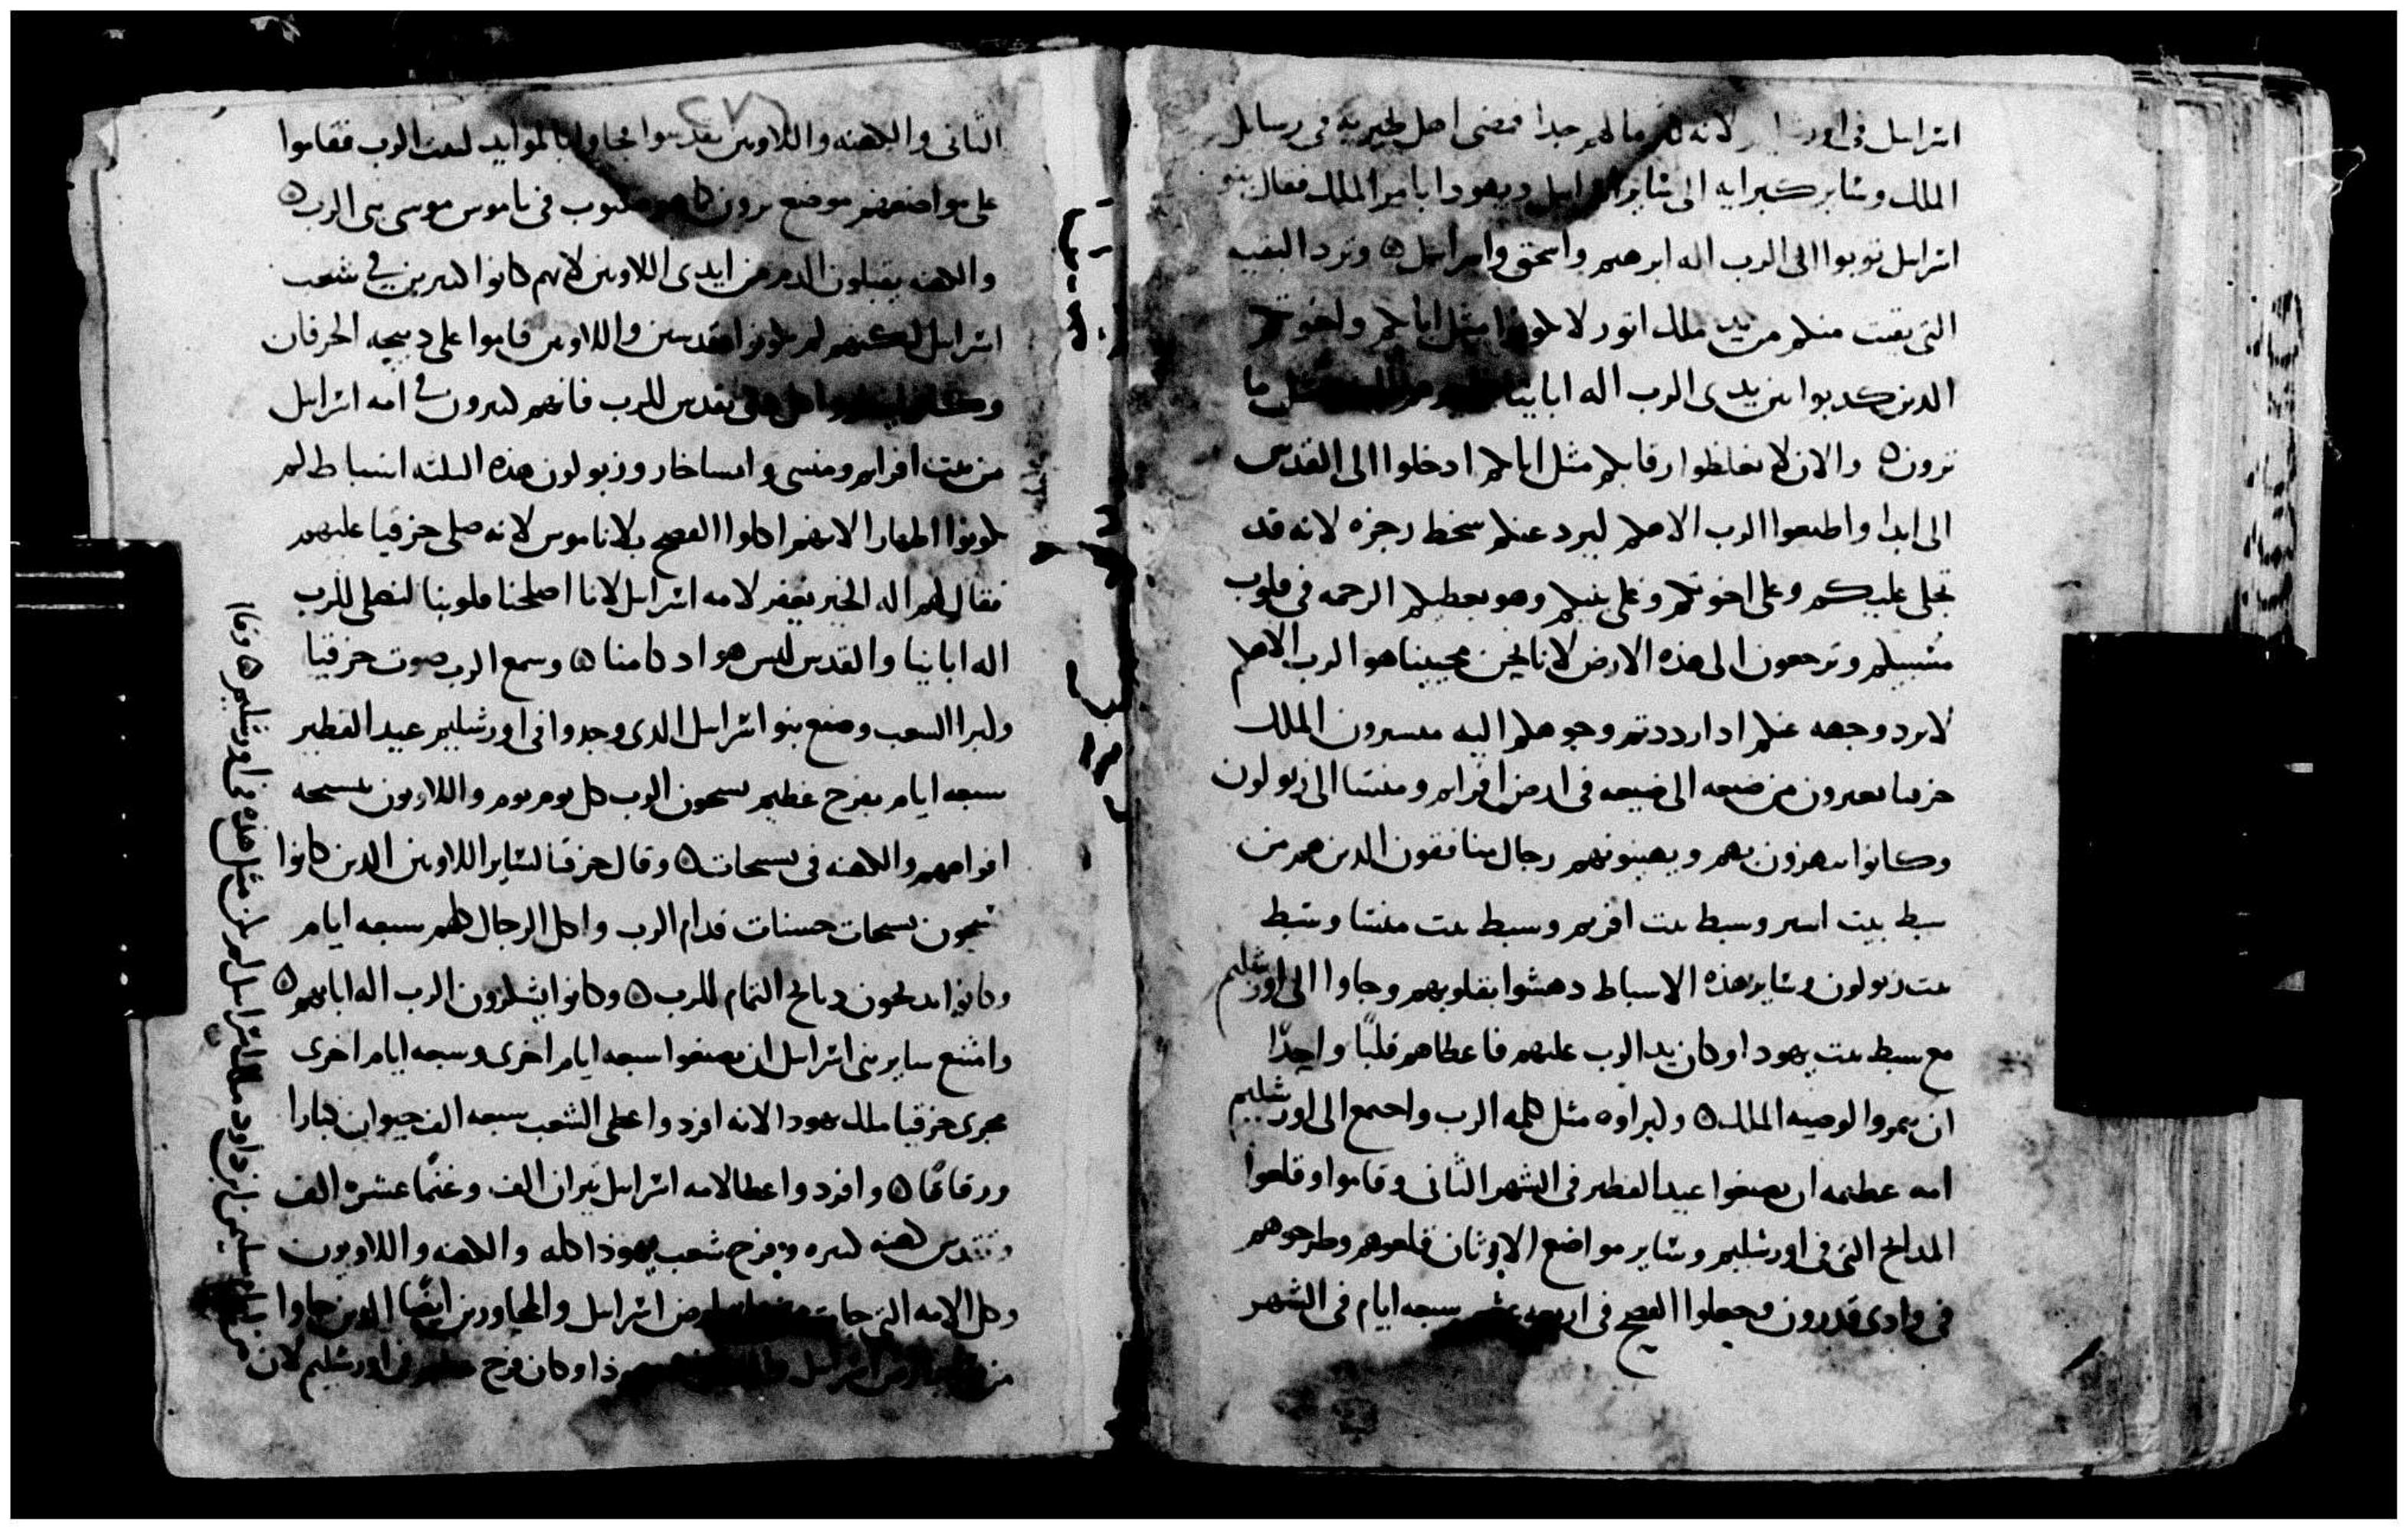 اسرايل فى اورشليم لانه لم جدا فمضى اهل طبريه فى رسايل
الملك وساير كبرايه الى ساير اسرايل ويهودا بامر الملك فقال بنو
اسرايل توبوا الى الرب اله ابرهيم واسحق واسرايل ۞ وترد البقيه
التى بقيت منكم من يد ملك اتور لا تكونوا مثل اباكم واخوتكم
الدين كدبوا بين يدى الرب اله اباينا مثل ما
ترون ۞ والان لا تغلظوا رقابكم مثل اباكم ادخلوا الى القدس
الى ابدا واطيعوا الرب الاهكم ليرد عنكم سخط رجزه لانه قد
تجلى عليكم وعلى اخوتكم وعلى بنيكم وهو يعطيكم الرحمه فى قلوب
مسبيكم وترجعون الى هذه الارض لانا نحن محبينا هو الرب الاهكم
لا يرد وجهه عنكم ادا رددتم وجوهكم اليه مبسرون الملك
حزقيا يعبرون من ضيعه الى ضيعه فى ارض افرايم ومنسا الى زبولون
وكانوا يستهزون بهم ويهينونهم رجال منافقون الدين هم من
سبط بيت اسير وسبط بيت افريم وسبط بيت منسا وسبط
بيت زبولون وساير هذه الاسباط دهشوا بقلوبهم وجاوا الى اورشليم
مع سبط بيت يهودا وكان يد الرب عليهم فاعطاهم قلبًا واحدًا
ان يتموا الوصيه الملك ۞ وكبراوه مثل كلمه الرب واجتمع الى اورشليم
امه عظيمه ان يصنعوا عيد الفطير فى الشهر الثانى وقاموا وقلعوا
المدابح التى فى اورشليم وساير مواضع الاوثان قلعوهم وطرحوهم
فى وادى قدرون وجعلوا الفصح فى اربعه عشر سبعه ايام فى الشهر
الثانى والكهنه واللاويين تقدسوا وجاوا بالموايد لبيت الرب فقاموا
على مواضعهم موضع يرون كما هو مكتوب فى ناموس موسى نبى الرب ۞
والكهنه يقبلون الدم من ايدى اللاويين لانهم كانوا كثيرين فى شعب
اسرايل لكنهم لم يكونوا مقدسين واللاويين قاموا على دبيحه الخرفان
تقدس للرب فانهم كثيرون فى امه اسرايل
من بيت افرايم ومنسى وايساخار وزبولون هذه الثلثه اسباط لم
يكونوا اطهارا لانهم اكلوا الفصح بلا ناموس لانه صلى حزقيا عليهم
فقال لهم اله الخير يغفر لامه اسرايل لانا اصلحنا قلوبنا لنصلى للرب
اله اباينا والقدس ليس هو ادكامنا ۞ وسمع الرب صوت حزقيا
وابرا الشعب وصنع بنو اسرايل الدى وجدوا فى اورشليم عيد الفطير
سبعه ايام بفرح عظيم يسبحون الرب كل يوم يوم واللاويون بتسبحه
افواههم والكهنه فى تسبحات ۞ وقال حزقيا لساير اللاويين الدين كانوا
يسبحون تسبحات حسنات قدام الرب واكل الرجال كلهم سبعه ايام
وكانوا يدبحون دبايح التمام للرب ۞ وكانوا يشكرون الرب اله ابايهم ۞
وامتنع ساير بنى اسرايل ان يصنعوا سبعه ايام اخرى وسبعه ايام اخرى
حزقيا ملك يهودا لانه افرد واعطى الشعب سبعه الف حيوان كبارا
ورقاقًا ۞ وافرد واعطا لامه اسرايل تيران الف وغنمًا عشره الف
وتقدس كهنه كثيره وبفرح شعب يهوذا كله والكهنه واللاويون
وكل الامه التى جات ارض اسرايل والمجاورين ايضًا الدين جاوا
من ارض اسرايل وكان فرح فى اورشليم لان
من ايام سليمن ابن داود ملك اسرايل لم يكن مثل هذه فى اورشليم ۞ وقاا